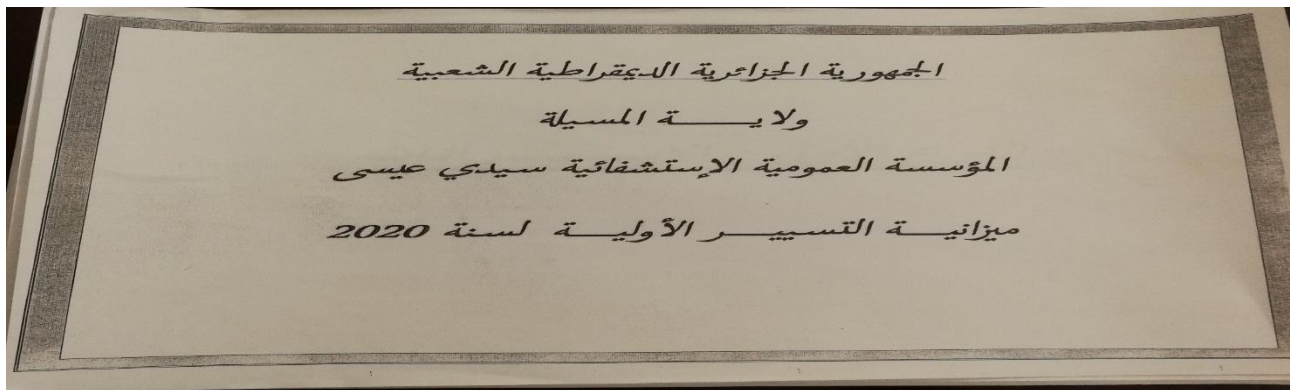 الجمهورية الجزائرية الديمقراطية الشعبية
ولايـــــة المسيلة
المؤسسة العمومية الإستشفائية سيدي عيسى
ميزانيـــة التسييـــر الأوليـــة لسنة 2020